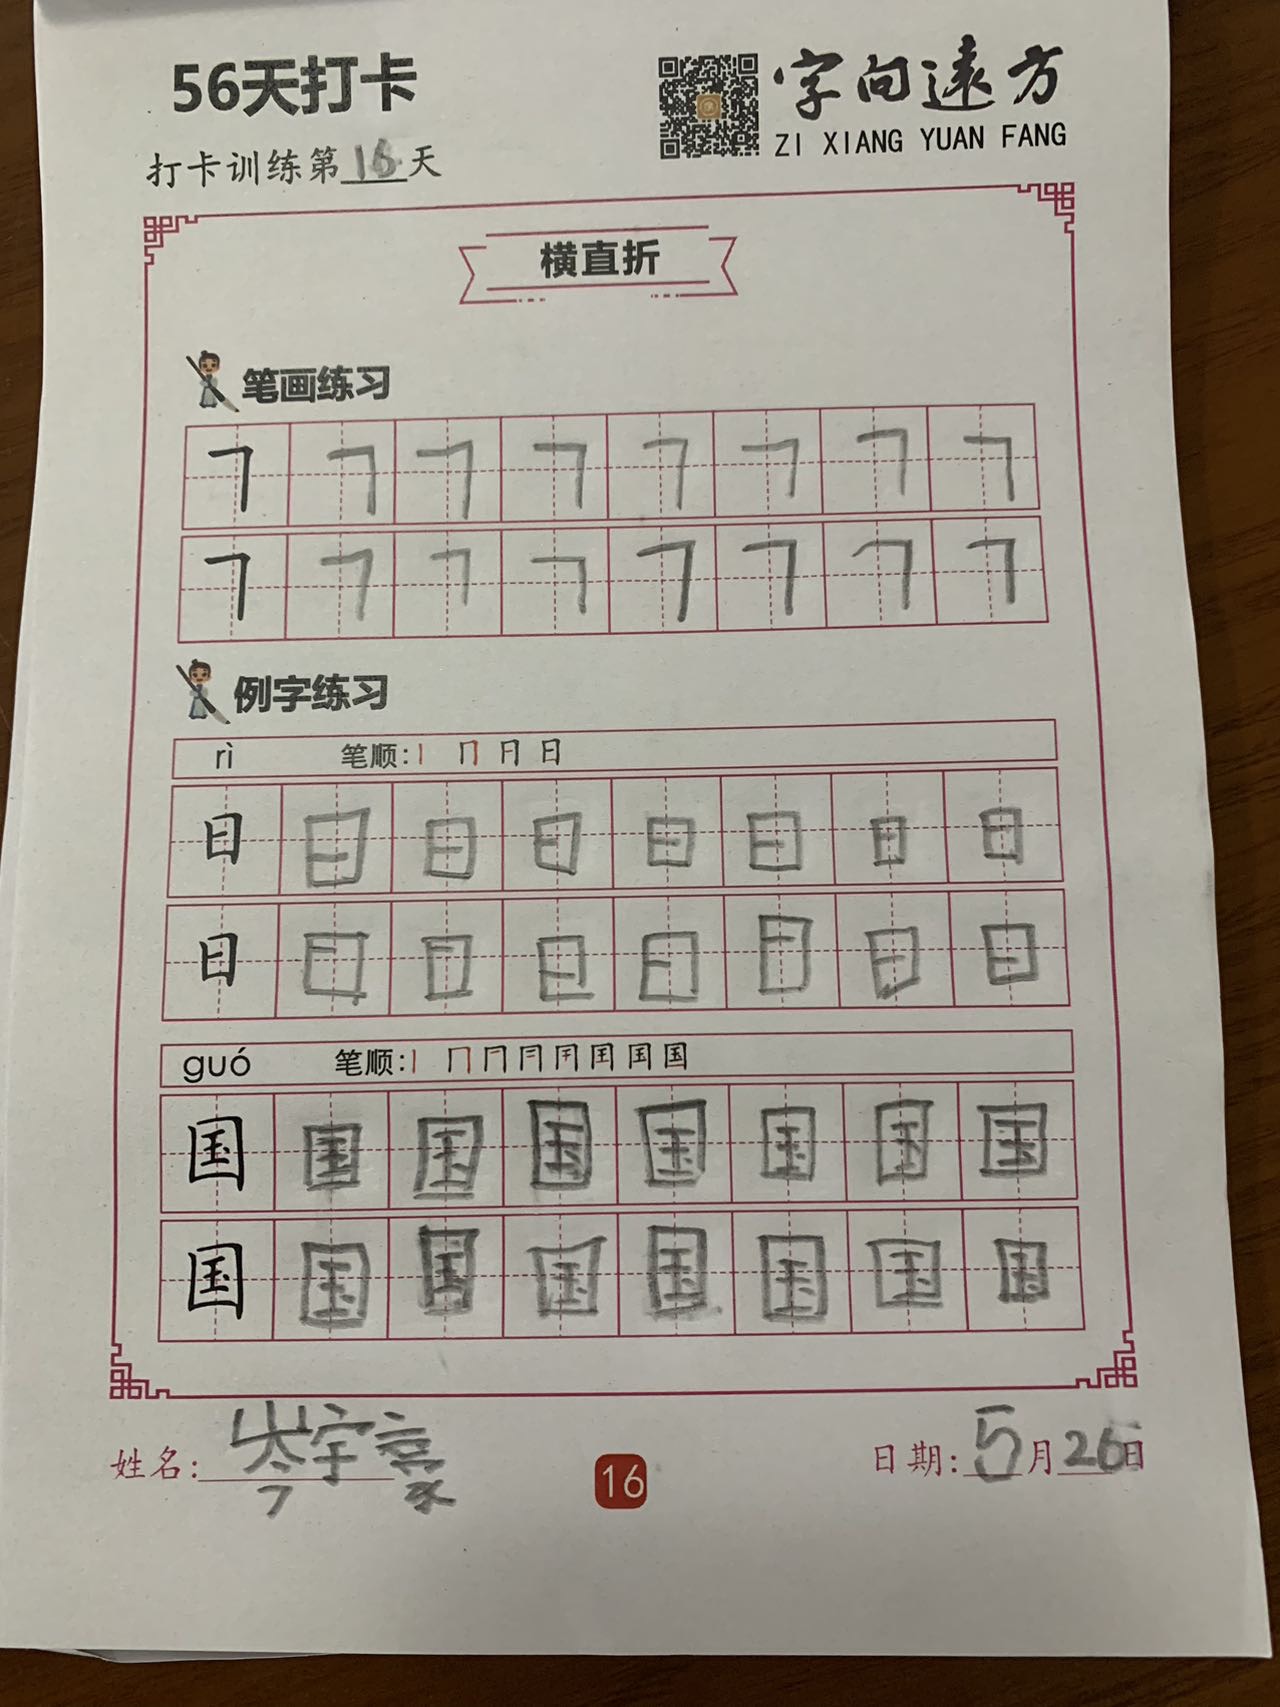 56天打卡
字向遠方
ZI XIANG YUAN FANG
打卡训练第16天
横直折
笔画练习
㇕ ㇕ ㇕ ㇕ ㇕ ㇕ ㇕ ㇕
㇕ ㇕ ㇕ ㇕ ㇕ ㇕ ㇕ ㇕
例字练习
rì 笔顺: 丨 冂 日 日
日 日 日 日 日 日 日 日
日 日 日 日 日 日 日 日
guó 笔顺: 丨 冂 国
国 国 国 国 国 国 国 国
国 国 国 国 国 国 国 国
姓名: 岑宇
16
日期: 5月26日